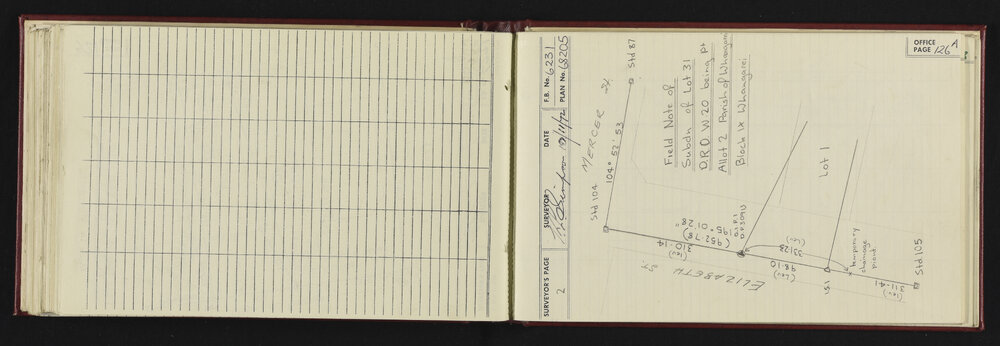 OFFICE
PAGE 126A
F.B. No. 6231
PLAN No. 68205
DATE
10/11/72
SURVEYOR
SURVEYOR'S PAGE
2
Field Note of
Subdn of Lot 31
D.R.O. W 20 being pt
Allot 2 Parish of Whangarei
Block IX Whangarei
MERCER St
Std 87
104° 52' 53
Std 104
ELIZABETH ST.
195° 01' 28"
(952.78)
310.14
(lev)
O.I.P. I
331.23
(lev)
98.10
(lev)
Lot 1
IS I
temporary
chainage
point
311.41
(lev)
Std 105